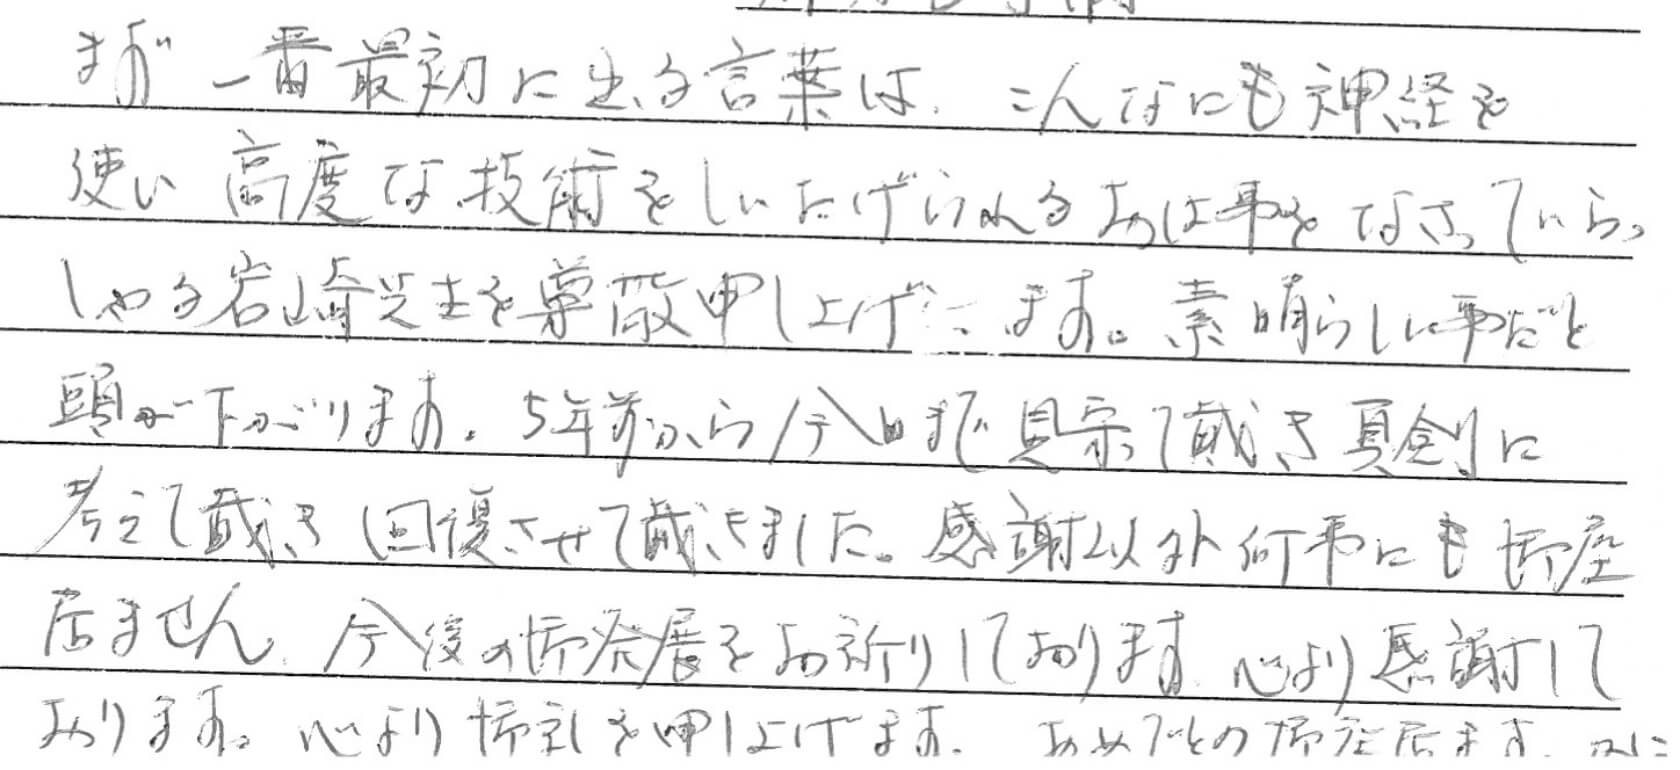 まず一番最初に出る言葉は、こんなにも神経を
使い高度な技術をしいたげられるお仕事をなさっていらっ
しゃる岩崎先生を尊敬申し上げます。素晴らしい事だと
頭が下がります。5年前から今日まで見守って戴き真剣に
考えて戴き回復させて戴きました。感謝以外何事にも御座
居ません。今後の御発展をお祈りしております。心より感謝して
おります。心より御礼を申し上げます。